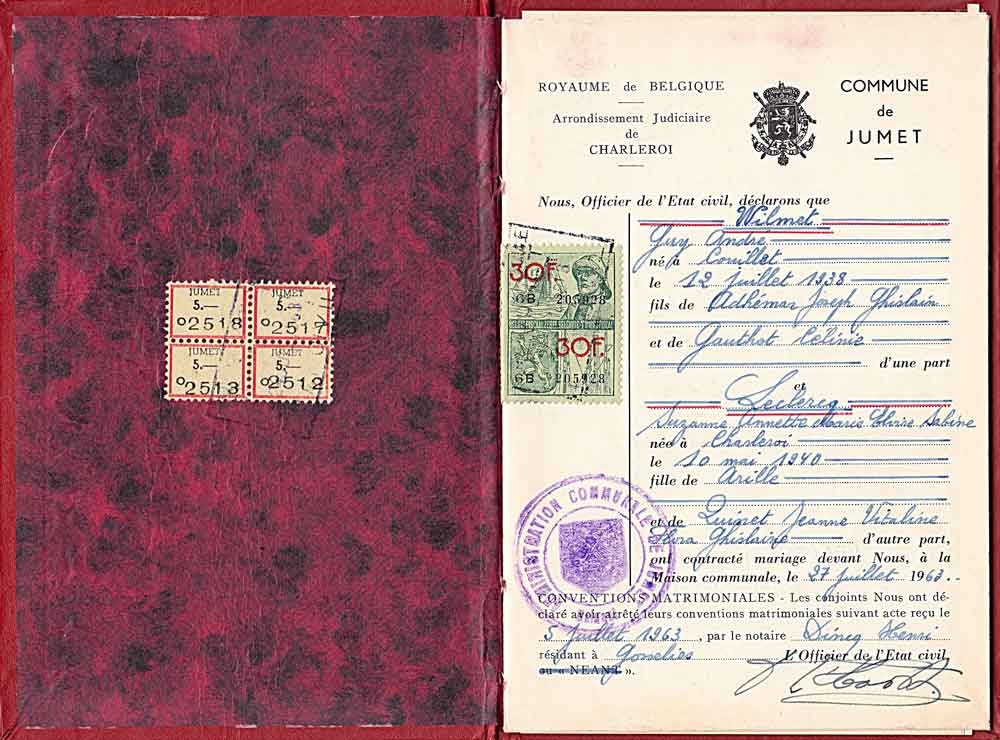 JUMET
5.—
o2518
JUMET
5.—
o2517
JUMET
5.—
o2513
JUMET
5.—
o2512
ROYAUME de BELGIQUE
Arrondissement Judiciaire
de
CHARLEROI
COMMUNE
de
JUMET
Nous, Officier de l'Etat civil, déclarons que
Wilmet
Guy André
né à Couillet
le 12 juillet 1938
fils de Adhémar Joseph Ghislain
et de Gauthot Célinie
d'une part
et
Leclercq
Suzanne Annette Marie Elvire Sabine
née à Charleroi
le 10 mai 1940
fille de Arille
et de Quinet Jeanne Vitaline
Flora Ghislaine d'autre part,
ont contracté mariage devant Nous, à la
Maison communale, le 27 juillet 1963.
CONVENTIONS MATRIMONIALES - Les conjoints Nous ont dé-
claré avoir arrêté leurs conventions matrimoniales suivant acte reçu le
5 juillet 1963, par le notaire Dincq Henri
résidant à Gosselies L'Officier de l'Etat civil,
ou « NEANT ».
30F.
6B 205928
30F.
6B 205928
ADMINISTRATION COMMUNALE DE JUMET